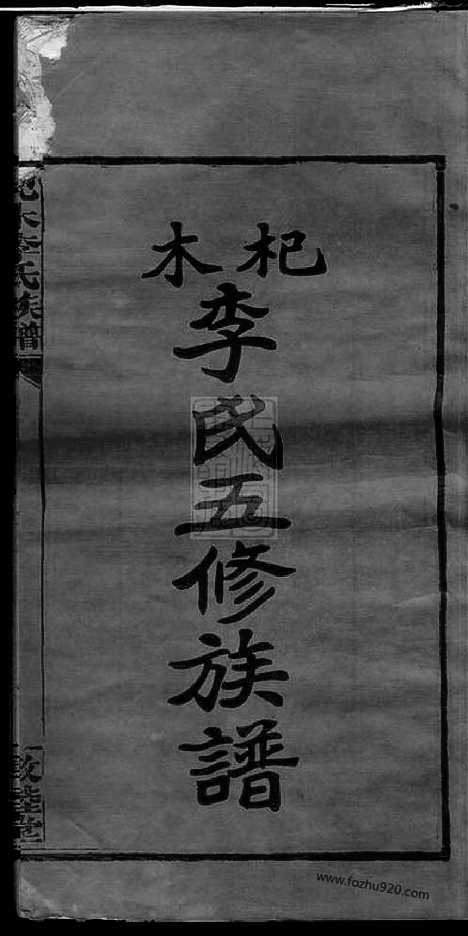 杞木
李氏五修族譜
木李氏族譜
www.fozhu920.com